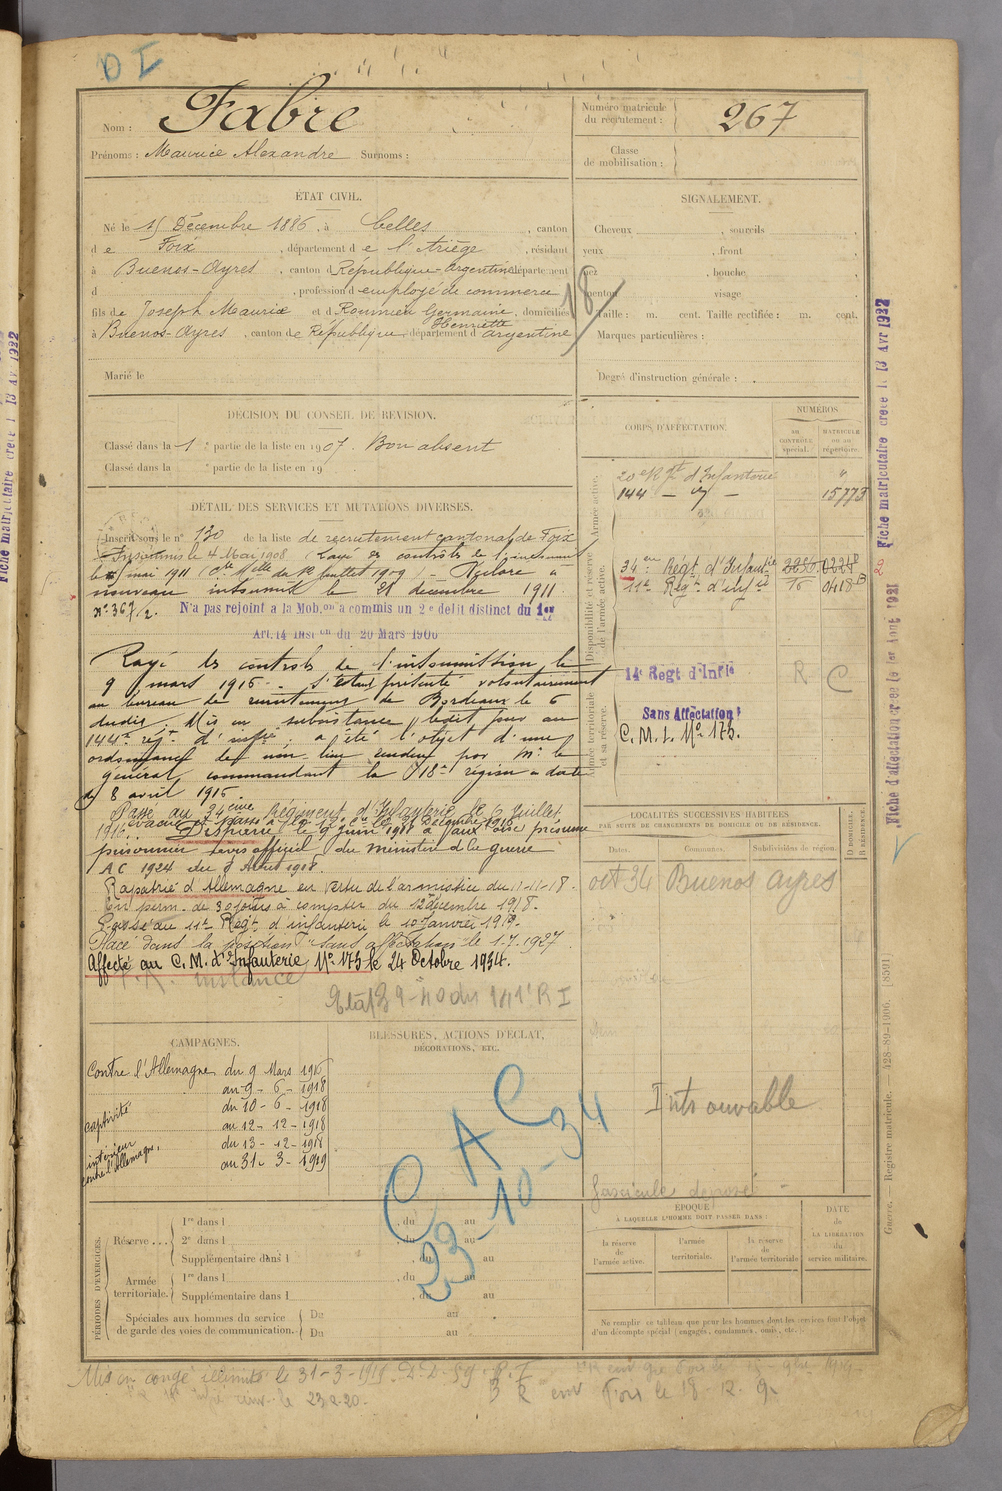 D I
Nom : Fabre
Numéro matricule du recrutement : 267
Prénoms : Maurice Alexandre Surnoms :
Classe de mobilisation :
ÉTAT CIVIL.
Né le 15 Décembre 1886, à Celles, canton
de Foix, département de l'Ariège, résidant
à Buenos-Ayres, canton d République-Argentine département
d , profession d employé de commerce
fils de Joseph Maurice et d Roumieu Germaine Henriette, domiciliés
à Buenos-Ayres, canton de République, département d' Argentine
Marié le
SIGNALEMENT.
Cheveux , sourcils
yeux , front
nez , bouche
menton visage
Taille : m. cent. Taille rectifiée : m. cent.
Marques particulières :
Degré d'instruction générale :
18
DÉCISION DU CONSEIL DE RÉVISION.
Classé dans la 1e partie de la liste en 1907. Bon absent
Classé dans la e partie de la liste en 19
DÉTAIL DES SERVICES ET MUTATIONS DIVERSES.
Inscrit sous le n° 130 de la liste de recrutement cantonal de Foix
Insoumis le 4 Mai 1908 (Rayé des contrôles de l'insoumission
le mai 1911 (Cre Mlle du Juillet 1909) - Déclaré à
nouveau insoumis le 21 décembre 1911.
N° 367/2. N'a pas rejoint à la Mob.on a commis un 2e délit distinct du 1er
Art. 14 Instr.on du 20 Mars 1906
Rayé des contrôles de l'insoumission le
9 mars 1916. - S'étant présenté volontairement
au bureau de recrutement de Bordeaux le 6
dudit. Mis en subsistance ledit jour au
144e régt. d'infrie a été l'objet d'une
ordonnance de non-lieu rendue par Mr le
général commandant la 18e région à date
du 8 avril 1916.
Passé au 34ème Régiment d'Infanterie le 6 Juillet
1916.
Disparu le 9 juin 1918 à présumé
prisonnier avis officiel du ministère de la guerre
AC 1924 du 9 Août 1918.
Rapatrié d'Allemagne en vertu de l'armistice du 11-11-18.
En perm. de 30 jours à compter du 12 décembre 1918.
Passé au 11e Régt. d'infanterie le 10 janvier 1919.
Placé dans la position "sans affectation" le 1.7.1927.
Affecté au C. M. d'Infanterie N° 173 le 24 Octobre 1934.
instance
CORPS D'AFFECTATION.
NUMÉROS
AU CONTRÔLE SPÉCIAL.
MATRICULE OU AU RÉPERTOIRE.
Armée active.
20e Rgt d'Infanterie "
144 - d° - 15773
Disponibilité et réserve de l'armée active.
34en Régt d'Infanterie
11e Régt d'infie 16 0418
14e Régt d'Infie R C
Armée territoriale et sa réserve.
Sans Affectation
C. M. I. N° 173.
LOCALITÉS SUCCESSIVES HABITÉES
PAR SUITE DE CHANGEMENTS DE DOMICILE OU DE RÉSIDENCE.
Dates. Communes. Subdivisions de région. D DOMICILE. R RÉSIDENCE
oct 34 Buenos ayres
Introuvable
fascicule déposé
CAMPAGNES.
Contre l'Allemagne du 9 Mars 1916
au 9 - 6 - 1918
captivité du 10 - 6 - 1918
au 12 - 12 - 1918
intérieur contre l'Allemagne, du 13 - 12 - 1918
au 31 - 3 - 1919
BLESSURES, ACTIONS D'ÉCLAT, DÉCORATIONS, ETC.
C A C
23-10-34
PÉRIODES D'EXERCICES.
Réserve ...
1re dans l , du au
2e dans l , du au
Supplémentaire dans l au
Armée territoriale.
1re dans l , du au
Supplémentaire dans l , du au
Spéciales aux hommes du service de garde des voies de communication.
Du au
Du au
ÉPOQUE
À LAQUELLE L'HOMME DOIT PASSER DANS :
la réserve de l'armée active.
l'armée territoriale.
la réserve de l'armée territoriale
DATE de LA LIBÉRATION du service militaire.
Ne remplir ce tableau que pour les hommes dont les services font l'objet
d'un décompte spécial (engagés, condamnés, omis, etc.)
Mis en congé illimité le 31-3-1919. D.D. 59e R.I
le 23-2-20.
Foix le 18-12-9.
Fiche matriculaire créée le 13 Avr 1922
Fiche d'affectation créée le 1er Août 1921
Guerre. — Registre matricule. — 428-89-1906. [8591]
Fiche matriculaire créée l 13 Av 1922